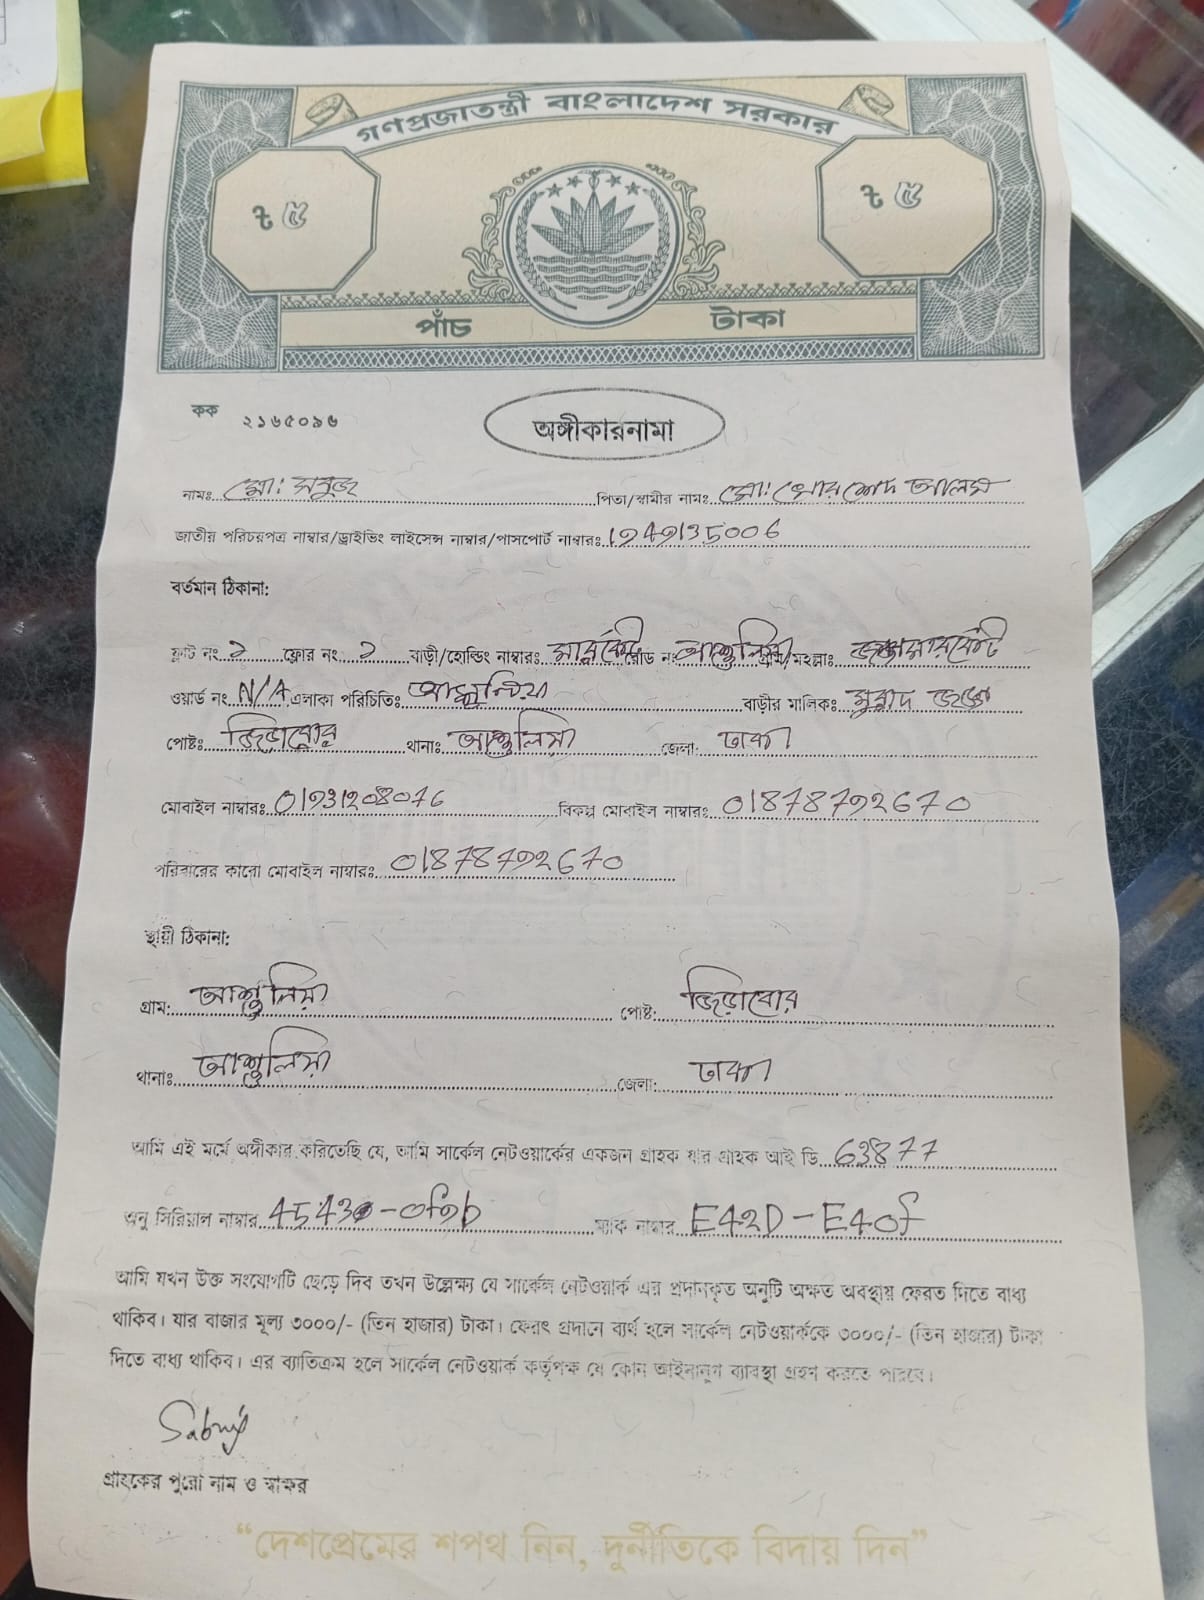 গণপ্রজাতন্ত্রী বাংলাদেশ সরকার
৳ ৫ ৳ ৫
পাঁচ টাকা
কক ২১৬৫০৯৬
অঙ্গীকারনামা
নামঃ মো: সবুজ পিতা/স্বামীর নামঃ মো: খোরশেদ আলম
জাতীয় পরিচয়পত্র নাম্বার/ড্রাইভিং লাইসেন্স নাম্বার/পাসপোর্ট নাম্বারঃ 1949135006
বর্তমান ঠিকানা:
ফ্লাট নং ২ ফ্লোর নং ২ বাড়ী/হোল্ডিং নাম্বারঃ রোড নং আশুলিয়া গ্রাম/মহল্লাঃ
ওয়ার্ড নং N/A এলাকা পরিচিতিঃ আশুলিয়া বাড়ীর মালিকঃ মুরাদ
পোষ্টঃ জিরাবোর থানাঃ আশুলিয়া জেলা: ঢাকা
মোবাইল নাম্বারঃ 01931208076 বিকল্প মোবাইল নাম্বারঃ 01878792670
পরিবারের কারো মোবাইল নাম্বারঃ 01878792670
স্থায়ী ঠিকানা:
গ্রাম: আশুলিয়া পোষ্ট: জিরাবোর
থানাঃ আশুলিয়া জেলা: ঢাকা
আমি এই মর্মে অঙ্গীকার করিতেছি যে, আমি সার্কেল নেটওয়ার্কের একজন গ্রাহক যার গ্রাহক আই ডি 63877
অনু সিরিয়াল নাম্বার ম্যাক নাম্বার E42D-E40f
আমি যখন উক্ত সংযোগটি ছেড়ে দিব তখন উল্লেক্ষ্য যে সার্কেল নেটওয়ার্ক এর প্রদানকৃত অনুটি অক্ষত অবস্থায় ফেরত দিতে বাধ্য
থাকিব। যার বাজার মূল্য ৩০০০/- (তিন হাজার) টাকা। ফেরৎ প্রদানে ব্যর্থ হলে সার্কেল নেটওয়ার্ককে ৩০০০/- (তিন হাজার) টাকা
দিতে বাধ্য থাকিব। এর ব্যাতিক্রম হলে সার্কেল নেটওয়ার্ক কর্তৃপক্ষ যে কোন আইনানুগ ব্যাবস্থা গ্রহণ করতে পারবে।
গ্রাহকের পুরো নাম ও স্বাক্ষর
“দেশপ্রেমের শপথ নিন, দুর্নীতিকে বিদায় দিন”